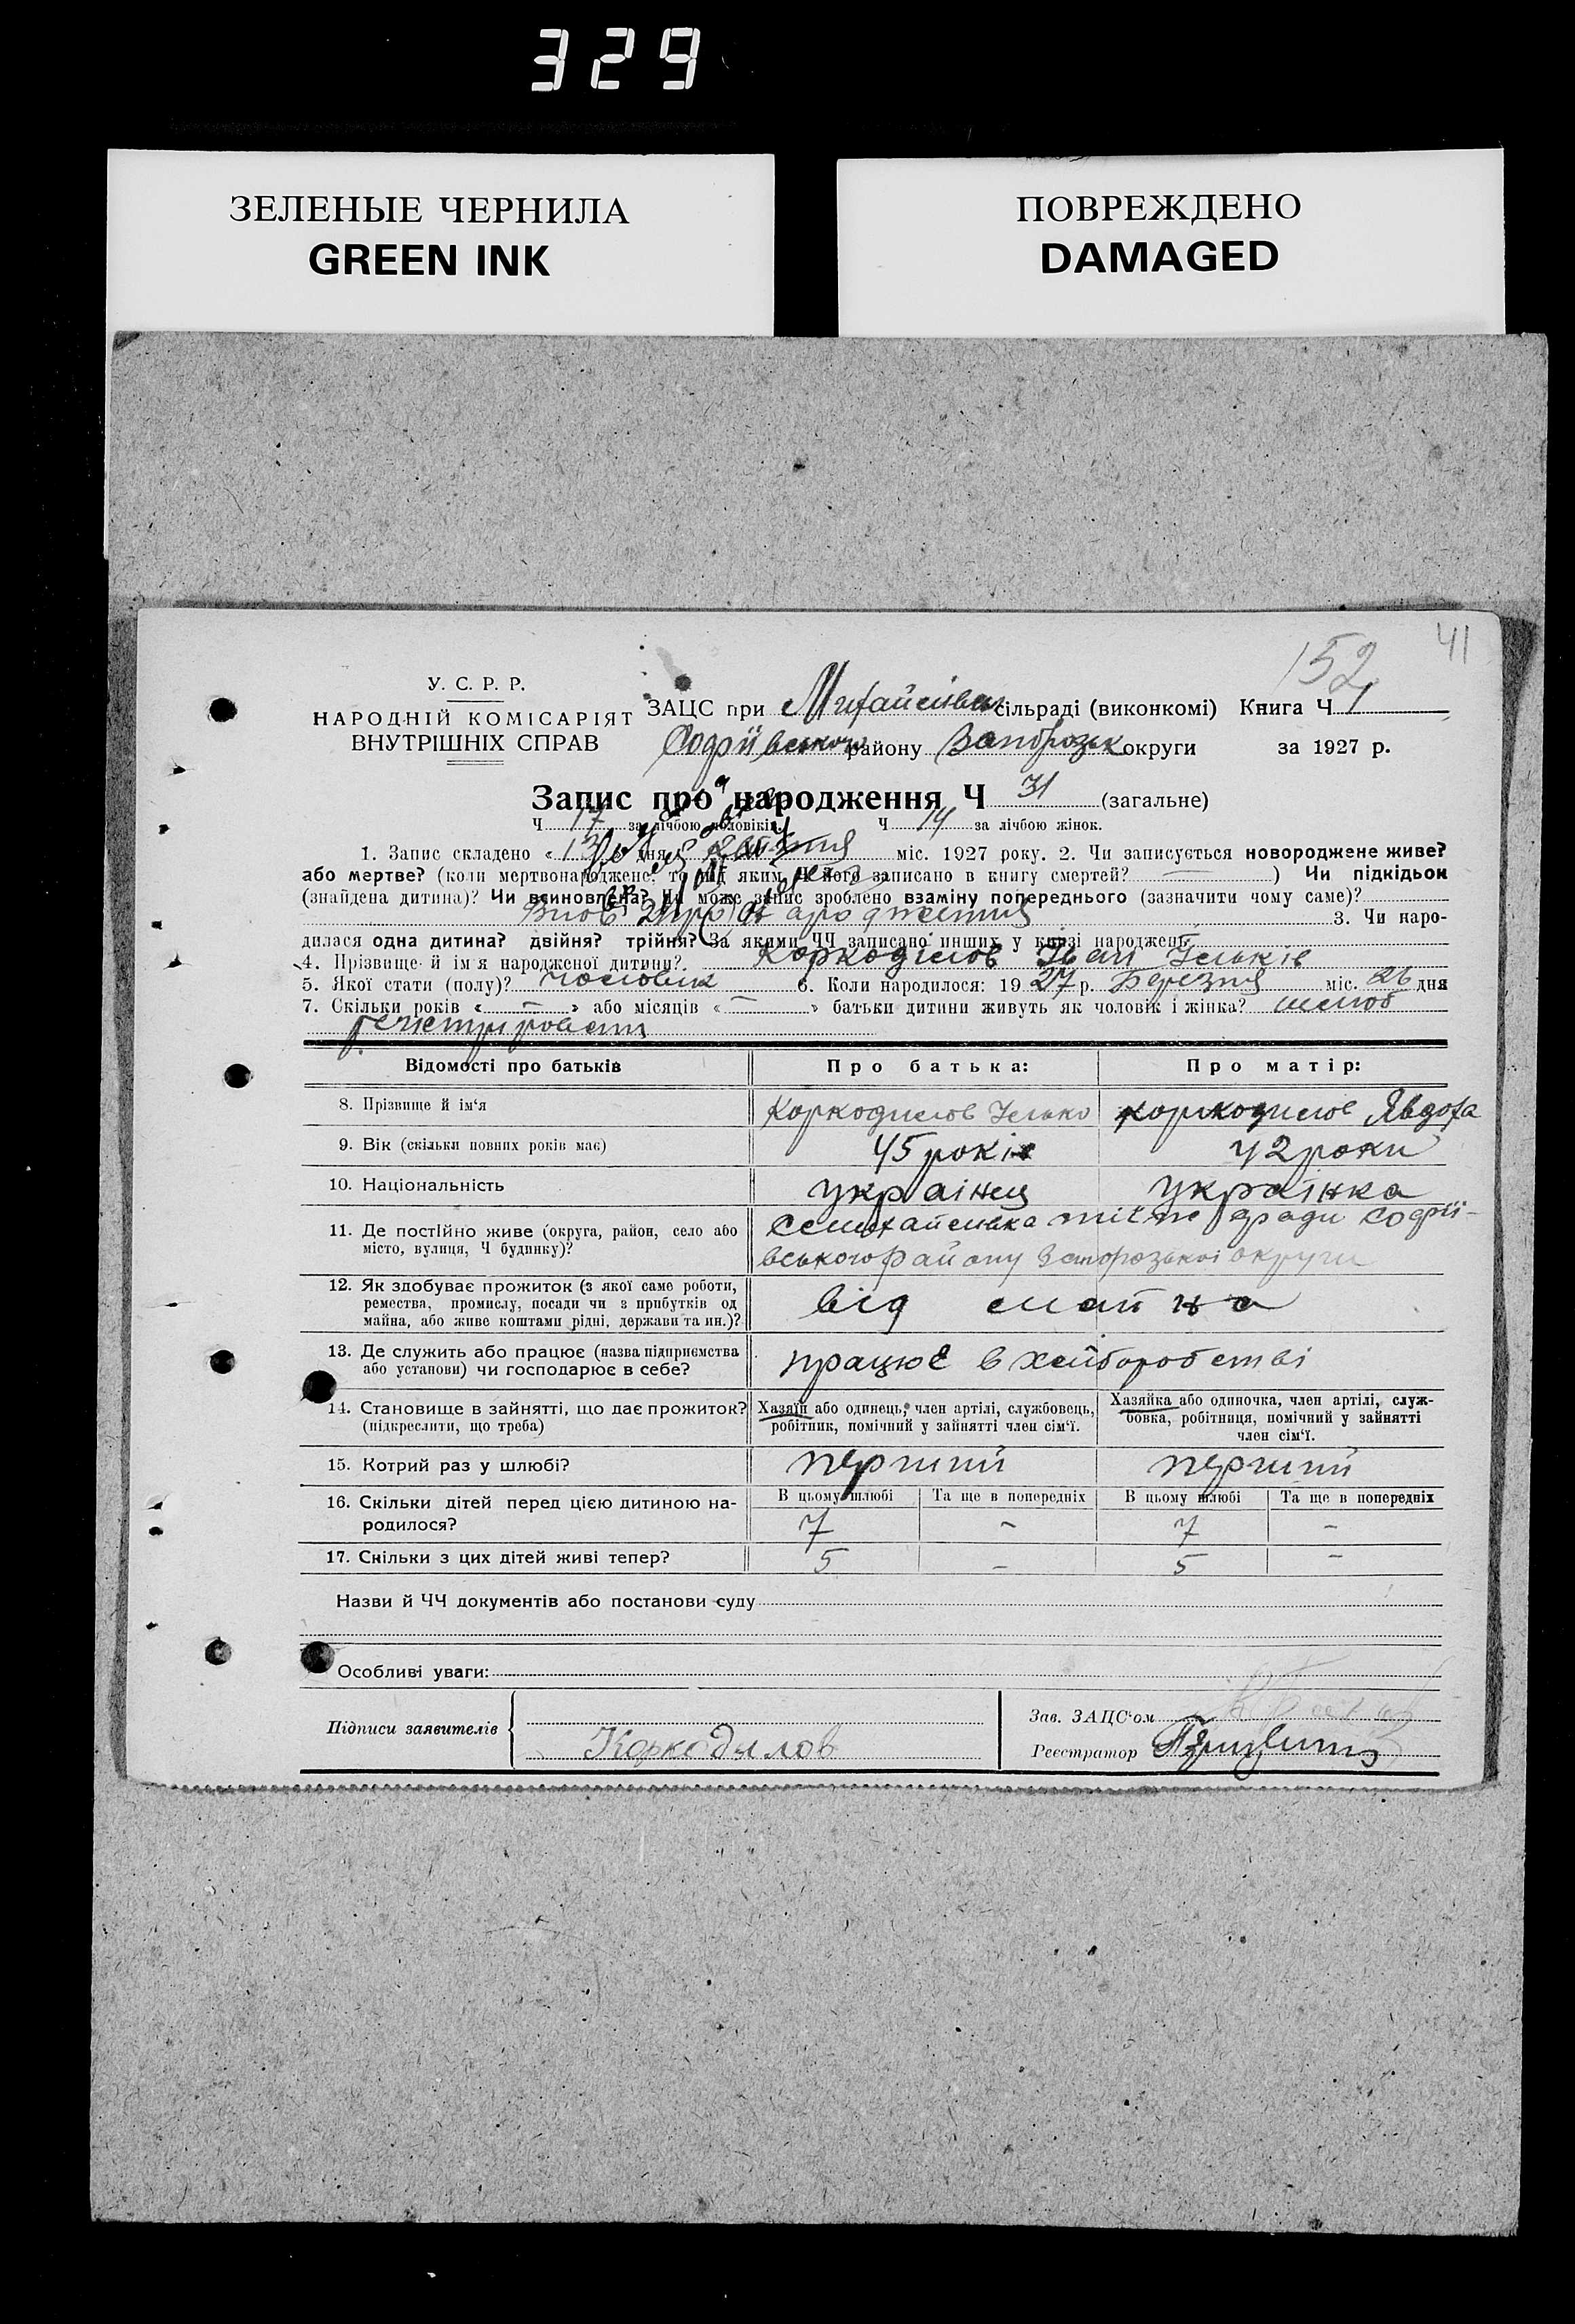 329
ЗЕЛЕНЫЕ ЧЕРНИЛА
GREEN INK
ПОВРЕЖДЕНО
DAMAGED
152
41
У. С. Р. Р.
НАРОДНІЙ КОМІСАРІЯТ
ВНУТРІШНІХ СПРАВ
ЗАЦС при Михайлівськ сільраді (виконкомі) Книга Ч 1
Софіївського району Запорозьк округи за 1927 р.
Запис про народження Ч 31 (загальне)
Ч 17 за лічбою чоловіків. Ч 14 за лічбою жінок.
1. Запис складено « 13 » дня квітня міс. 1927 року. 2. Чи записується новороджене живе?
або мертве? (коли мертвонароджене, то під яким Ч його записано в книгу смертей? — ) Чи підкідьок
(знайдена дитина)? Чи всиновлена? Чи може запис зроблено взаміну попереднього (зазначити чому саме)?
Вновь народження 3. Чи наро-
дилася одна дитина? двійня? трійня? За якими ЧЧ записано инших у книзі народжень
4. Прізвище й ім'я народженої дитини? Коркодилов Іван Ільків
5. Якої стати (полу)? чоловік 6. Коли народилося: 1927 р. Березня міс. 26 дня
7. Скільки років « — » або місяців « — » батьки дитини живуть як чоловік і жінка? шлюб
регістрірован
Відомості про батьків Про батька: Про матір:
8. Прізвище й ім'я Коркодилов Ілько Коркодилов Явдоха
9. Вік (скільки повних років має) 45 років 42 роки
10. Національність українец українка
11. Де постійно живе (округа, район, село або
місто, вулиця, Ч будинку)?
С Михайлівка тіїж ради Софії-
вського району Запорозької округи
12. Як здобуває прожиток (з якої саме роботи,
ремества, промислу, посади чи з прибутків од
майна, або живе коштами рідні, держави та ин.)?
від майна
13. Де служить або працює (назва підприємства
або установи) чи господарює в себе?
працює в хліборобстві
14. Становище в зайнятті, що дає прожиток?
(підкреслити, що треба)
Хазяїн або одинець, член артілі, службовець,
робітник, помічний у зайнятті член сім'ї.
Хазяйка або одиночка, член артілі, служ-
бовка, робітниця, помічний у зайнятті
член сім'ї.
15. Котрий раз у шлюбі? перший перший
16. Скільки дітей перед цією дитиною на-
родилося?
В цьому шлюбі Та ще в попередніх В цьому шлюбі Та ще в попередніх
7 – 7 –
17. Скільки з цих дітей живі тепер? 5 – 5 –
Назви й ЧЧ документів або постанови суду
Особливі уваги:
Підписи заявителів
Коркодылов
Зав. ЗАЦС'ом
Реєстратор